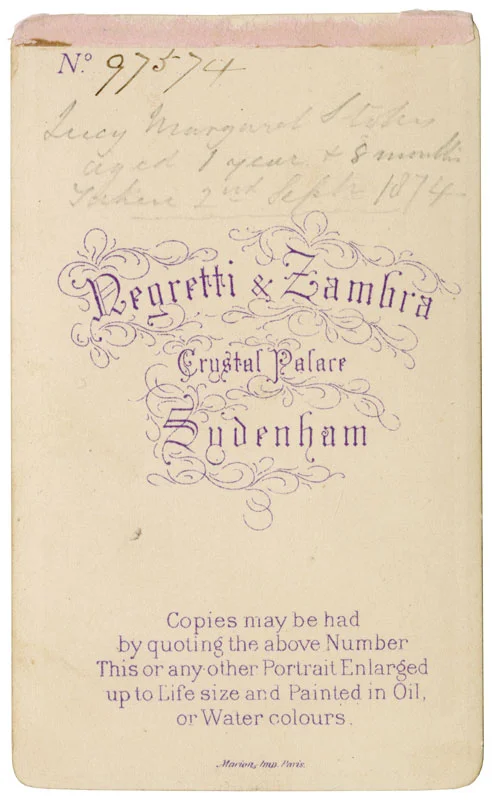 N.º 97574
Lucy Margaret Stokes
aged 1 year & 8 months
Taken 2nd Septr 1874
Negretti & Zambra
Crystal Palace
Sydenham
Copies may be had
by quoting the above Number
This or any other Portrait Enlarged
up to Life size and Painted in Oil,
or Water colours.
Marion, Imp. Paris.